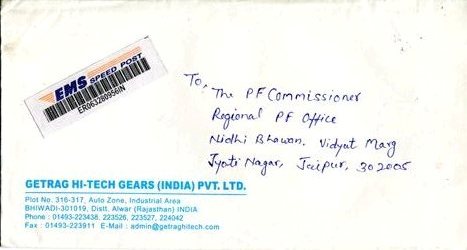 EMS SPEED POST
ER063280956IN
To,
The PF Commissioner
Regional PF Office
Nidhi Bhawan, Vidyut Marg
Jyoti Nagar, Jaipur, 302005
GETRAG HI-TECH GEARS (INDIA) PVT. LTD.
Plot No. 316-317, Auto Zone, Industrial Area
BHIWADI-301019, Distt. Alwar (Rajasthan) INDIA
Phone : 01493-223438, 223526, 223527, 224042
Fax : 01493-223911 E-Mail : admin@getraghitech.com